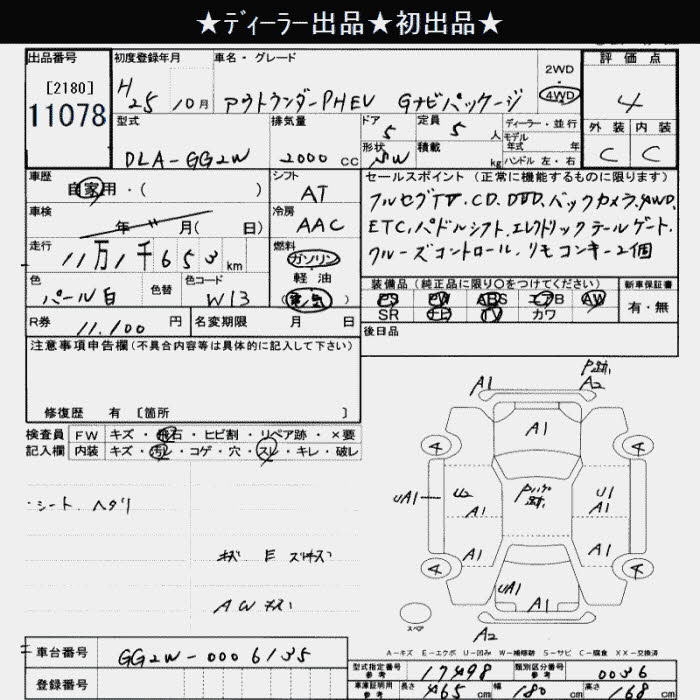 ★ディーラー出品★初出品★
出品番号
[2180]
11078
初度登録年月
H25 10月
車名・グレード
アウトランダーPHEV Gナビパッケージ
2WD
・
4WD
評価点
4
外装 内装
C C
型式
DLA-GG2W
排気量
2000 CC
ドア
5
形状
SW
定員
5 人
積載
kg
ディーラー・並行
モデル
年式 年
ハンドル 左・右
車歴
自家用・( )
シフト
AT
セールスポイント(正常に機能するものに限ります)
フルセグTV.CD.DVD.バックカメラ.4WD.
ETC.パドルシフト.エレクトリックテールゲート.
クルーズコントロール.リモコンキー2個
車検
年 月( 日)
冷房
AAC
走行
11万1千653 km
燃料
ガソリン
軽油
(電気)
色
パール白
色替
色コード
W13
装備品(純正品に限り○をつけてください)
PS PW ABS エアB AW
SR ナビ TV カワ
新車保証書
有・無
R券
11.100 円
名変期限 月 日
後日品
注意事項申告欄(不具合内容等は具体的に記入して下さい)
修復歴 有 [箇所 ]
検査員
記入欄
FW キズ・飛石・ヒビ割・リペア跡・×要
内装 キズ・汚レ・コゲ・穴・スレ・キレ・破レ
・シート ヘタリ
キズ E スリキズ
AWキズ
A1
A2
A1
4
4
UA1
U2
A1
U1
A1
A1
A1
4
4
UA1
A1
スペア
A2
A-キズ E-エクボ U-凹み W-補修跡 S-サビ C-腐食 XX-交換済
車台番号
GG2W-0006135
登録番号
型式指定番号
参考
17498
類別区分番号
参考
0036
車庫証明用
参考
長さ 465 cm 幅 180 cm 高さ 168 cm